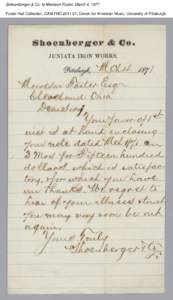 Shoenberger & Co. to Morrison Foster, March 4, 1871
Foster Hall Collection, CAM.FHC.2011.01, Center for American Music, University of Pittsburgh.
Shoenberger & Co.
JUNIATA IRON WORKS.
Pittsburgh, Mch 4 1871
Morrison Foster Esq
Cleveland Ohio
Dear Sir
Your favor of 1st
inst is at hand enclosing
your note dated
3 Mos for Fifteen hundred
dollars which is satisfac
tory, for which you have
our thanks. We regret to
hear of your illness & trust
you may very soon be out
again.
Yours Truly
Shoenberger & Co